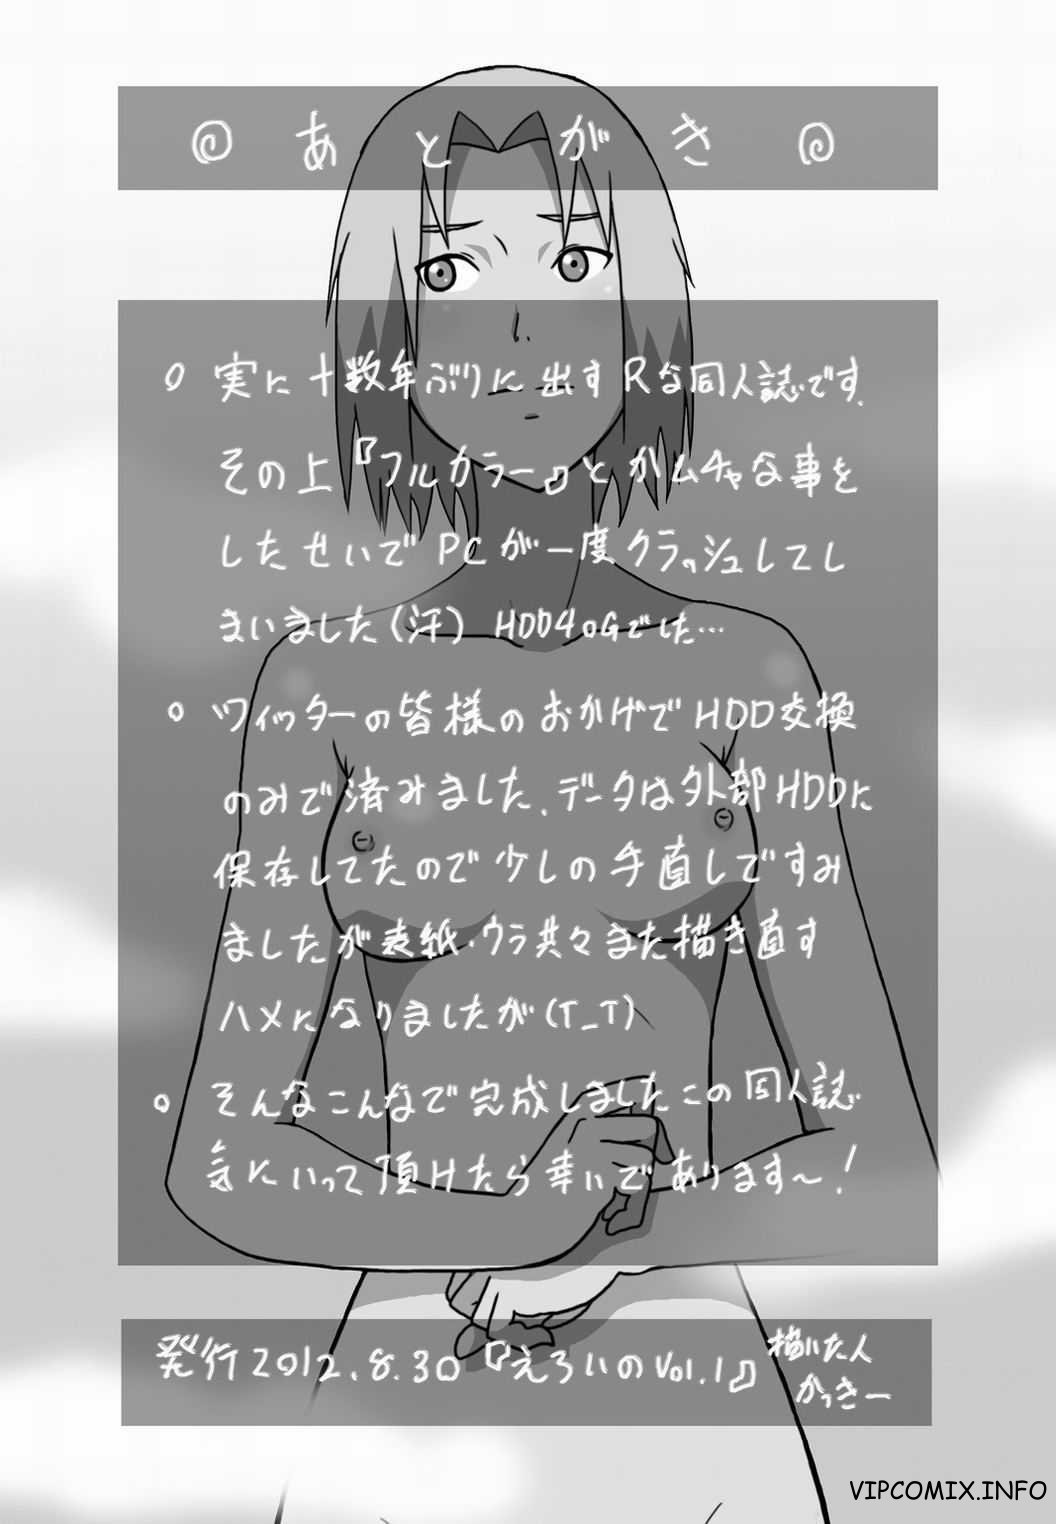 @ あとがき @
○ 実に十数年ぶりに出すRな同人誌です.
その上『フルカラー』とかムチャな事を
したせいでPCが一度クラッシュしてし
まいました(汗) HDD40Gでした…
○ ツイッターの皆様のおかげでHDD交換
のみで済みました、データは外部HDDに
保存してたので少しの手直しですみ
ましたが表紙・ウラ共々また描き直す
ハメになりましたが(T_T)
○ そんなこんなで完成しましたこの同人誌
気にいって頂けたら幸いであります〜!
発行2012.8.30『えろいのVol.1』
描いた人
かっきー
VIPCOMIX.INFO